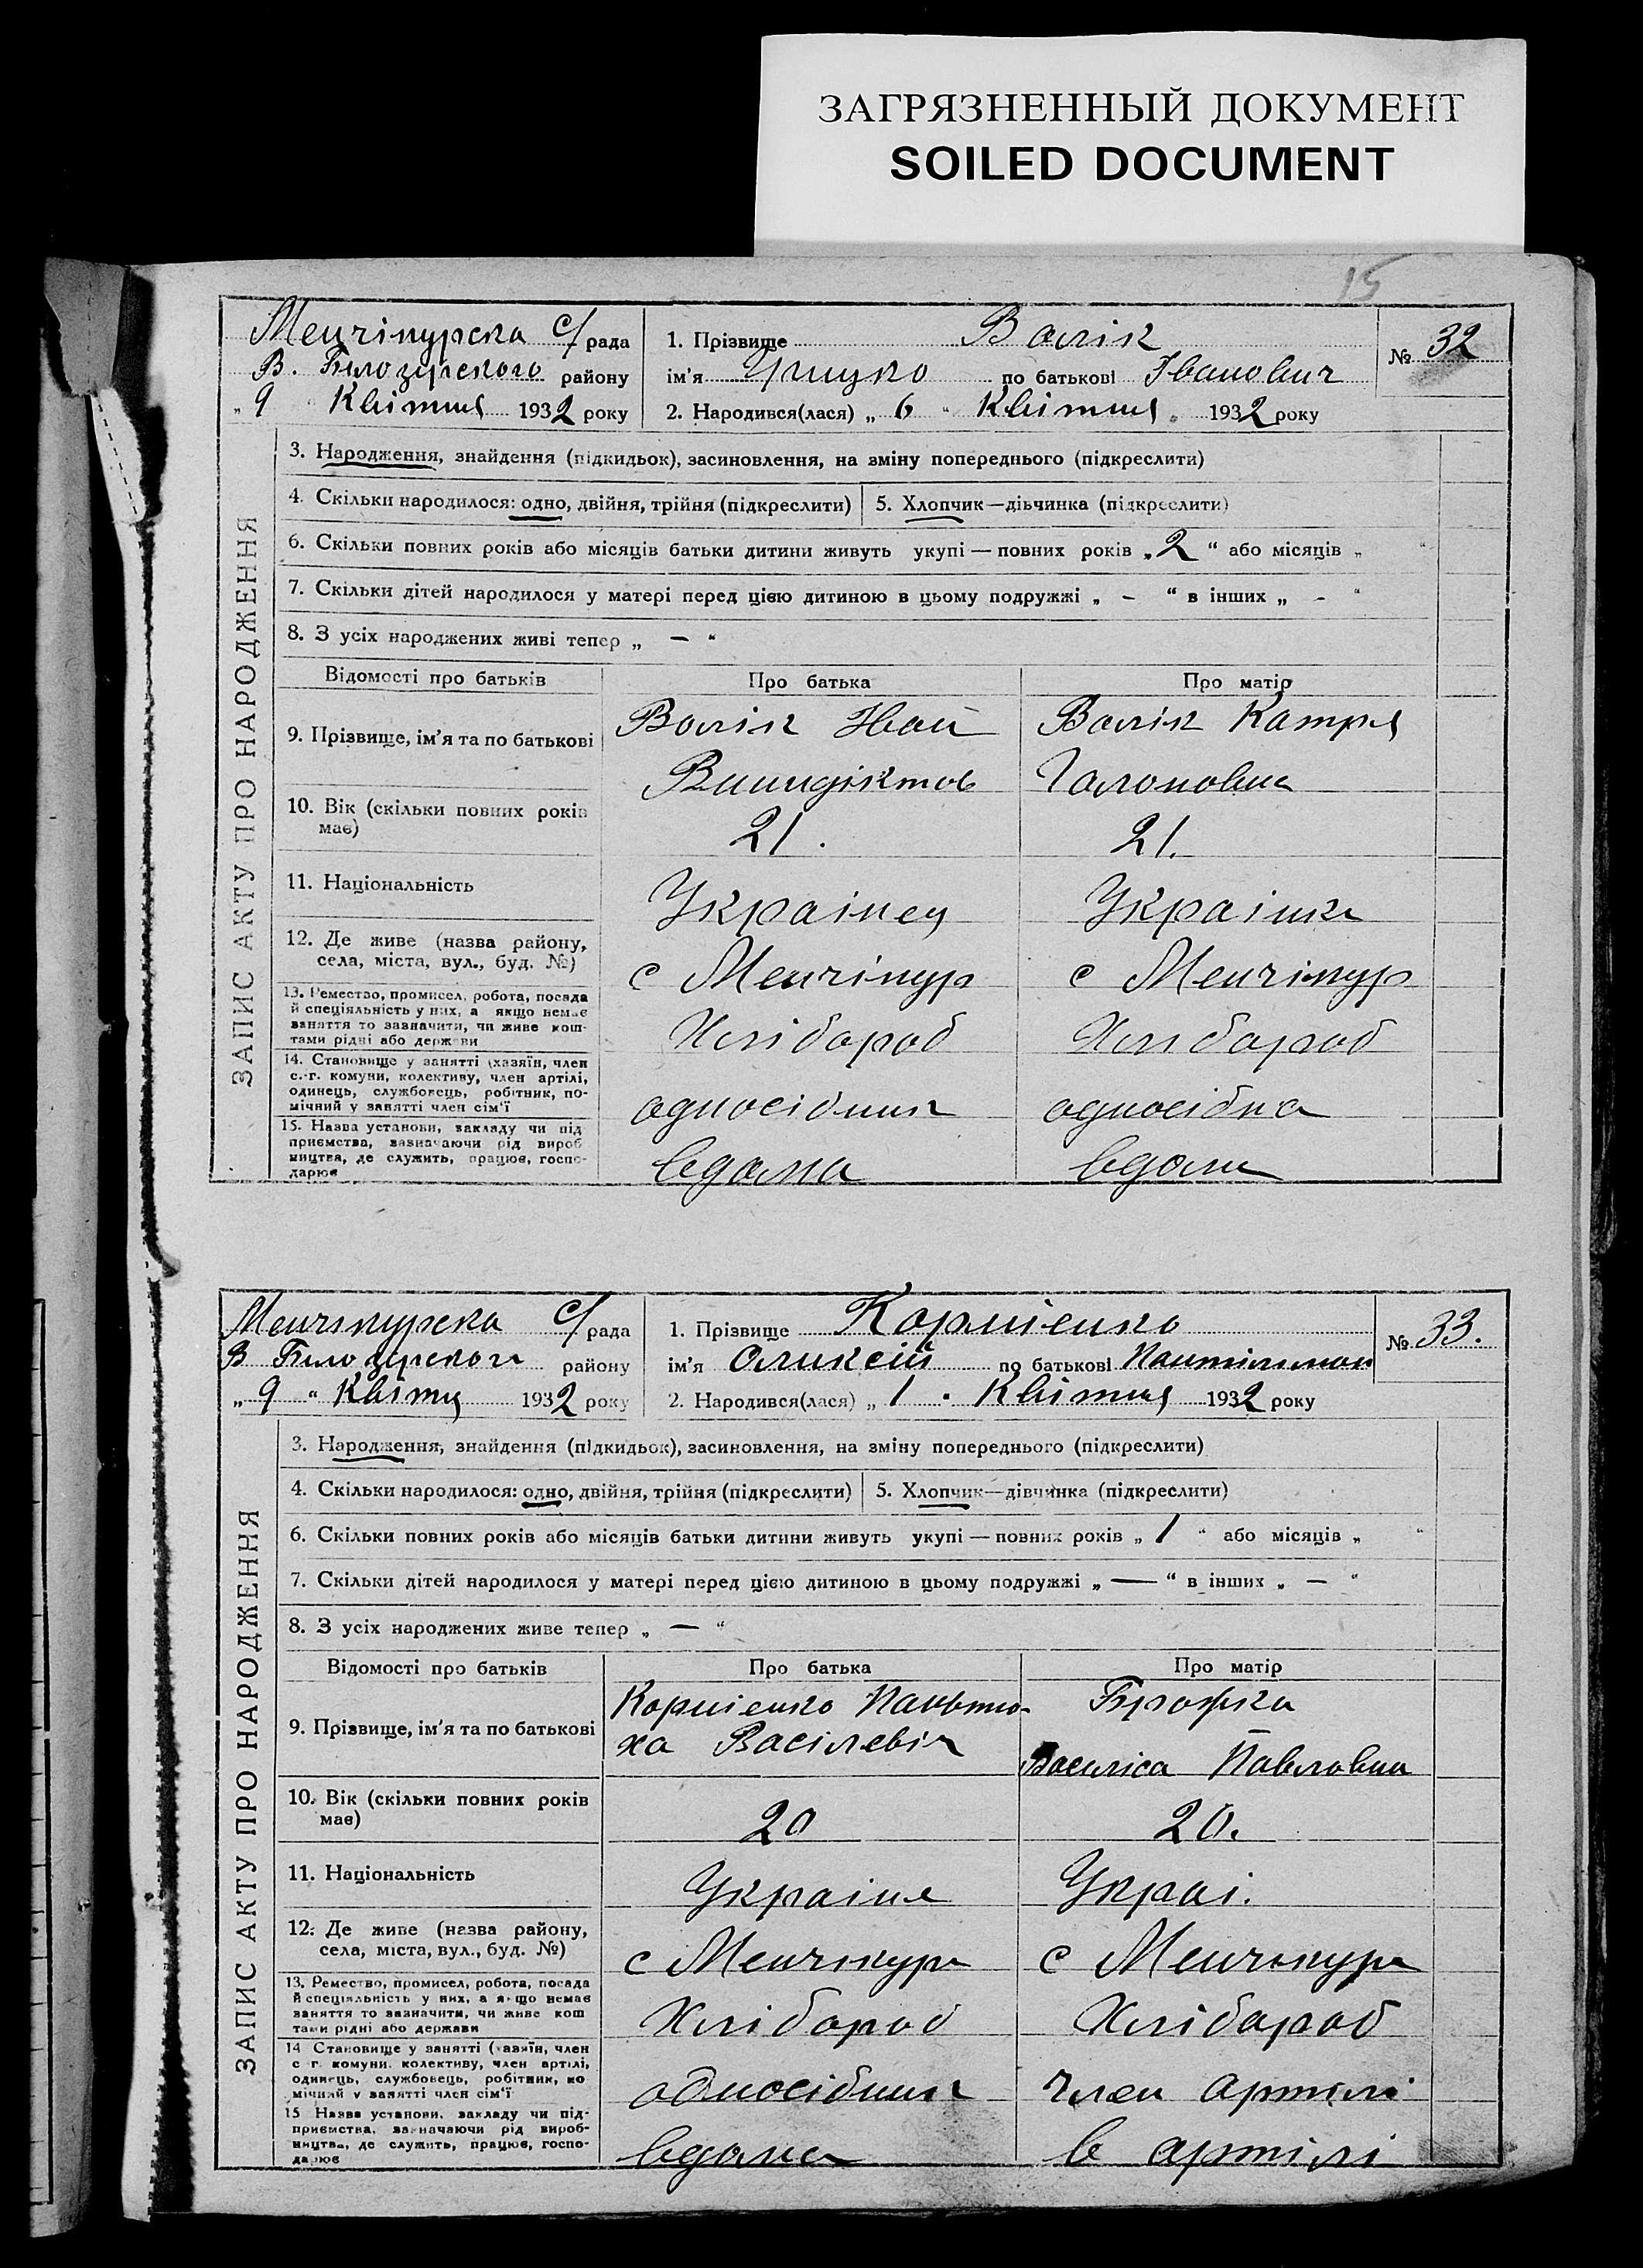 ЗАГРЯЗНЕННЫЙ ДОКУМЕНТ
SOILED DOCUMENT
15
ЗАПИС АКТУ ПРО НАРОДЖЕННЯ
Менчікурска с/рада
В. Білозерского району
„ 9 “ Квітня 1932 року
1. ПрізвищеВолік
ім’я Грицко по батькові Іванович
№ 32
2. Народився(лася) „ 6 “ Квітня 1932 року
3. Народження, знайдення (підкидьок), засиновлення, на зміну попереднього (підкреслити)
4. Скільки народилося: одно, двійня, трійня (підкреслити) 5. Хлопчик—дівчинка (підкреслити)
6. Скільки повних років або місяців батьки дитини живуть укупі — повних років „ 2 “ або місяців „ “
7. Скільки дітей народилося у матері перед цією дитиною в цьому подружжі „ - “ в інших „ - “
8. З усіх народжених живі тепер „ — “
Відомості про батьків Про батька Про матір
9. Прізвище, ім’я та по батькові
Волік Іван
Волік Катря
10. Вік (скільки повних років має)
21.
21.
11. Національність
Украінец
Украінка
12. Де живе (назва району, села, міста, вул., буд. №)
с Менчікур
с Менчікур
13. Ремество, промисел, робота, посада й спеціяльність у них, а якщо немає заняття то зазначити, чи живе кош-
тами рідні або держави
Хлібороб
Хлібороб
14. Становище у занятті (хазяїн, член с.-г. комуни, колективу, член артілі, одинець, службовець, робітник, по-
мічний у занятті член сім’ї
односібник
односібна
15. Назва установи, закладу чи під
приємства, зазначаючи рід вироб
ництва, де служить, працює, госпо-
дарює
вдома
вдома
ЗАПИС АКТУ ПРО НАРОДЖЕННЯ
Менчікурска с/рада
В Білозерского району
„ 9 “ Квітня 1932 року
1. Прізвище Корнієнко
ім’я Оликсій по батькові
№ 33.
2. Народився(лася) „ 1 “ Квітня 1932 року
3. Народження, знайдення (підкидьок), засиновлення, на зміну попереднього (підкреслити)
4. Скільки народилося: одно, двійня, трійня (підкреслити) 5. Хлопчик—дівчинка (підкреслити)
6. Скільки повних років або місяців батьки дитини живуть укупі — повних років „ 1 “ або місяців „ “
7. Скільки дітей народилося у матері перед цією дитиною в цьому подружжі „ — “ в інших „ — “
8. З усіх народжених живе тепер „ — “
Відомості про батьків Про батька Про матір
9. Прізвище, ім’я та по батькові
Корнієнко
Васілевіч
Василіса Павловна
10. Вік (скільки повних років має)
20
20.
11. Національність
Україне
Украі.
12. Де живе (назва району, села, міста, вул., буд. №)
с Менчікури
с Менчікури
13. Ремество, промисел, робота, посада
й спеціяльність у них, а якщо немає
заняття то зазначити, чи живе кош
тами рідні або держави
Хлібороб
Хлібороб
14 Становище у занятті (хазяїн, член
с г. комуни, колективу, член артілі,
одинець, службовець, робітник, по
мічний у занятті член сім’ї
односібник
член артілі
15 Назва установи, закладу чи під-
приємства, зазначаючи рід вироб-
ництва, де служить, працює, госпо-
дарює
вдома
в артілі